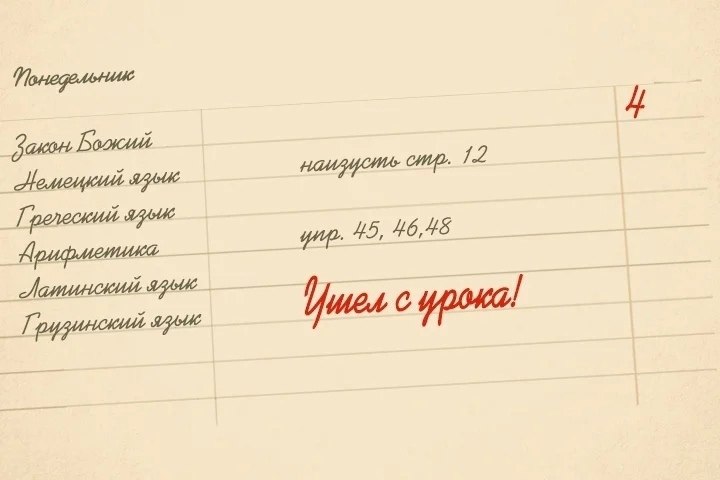 Понедельник
4
Закон Божий
Немецкий язык наизусть стр. 12
Греческий язык
Арифметика упр. 45, 46,48
Латинский язык
Ушел с урока!
Грузинский язык